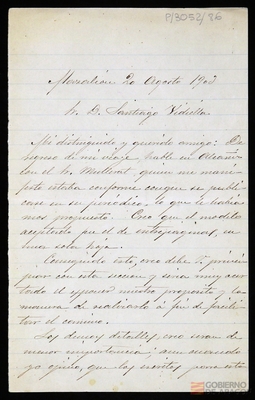 P/3052/86
Mazaleón 20 Agosto 1903
Sr. D. Santiago Vidiella
Mi distinguido y querido amigo: De
regreso de mi viaje, hablé en Alcañiz
con el Sr. Mullerat, quien me mani-
festó estaba conforme con que se publi-
case en su periódico lo que le había-
mos propuesto. Creo que el modelo
aceptado fue el de entrepáginas, en
una sola hoja.
Conseguido esto, creo debe V. princi-
piar con esta sección y sería muy acer-
tado el exponer nuestro propósito y la
manera de realizarlo á fin de facili-
tar el camino.
Los demás detalles, creo serán de
menor importancia; aun cuando
yo opino, que los escritos para esta
GOBIERNO
DE ARAGON